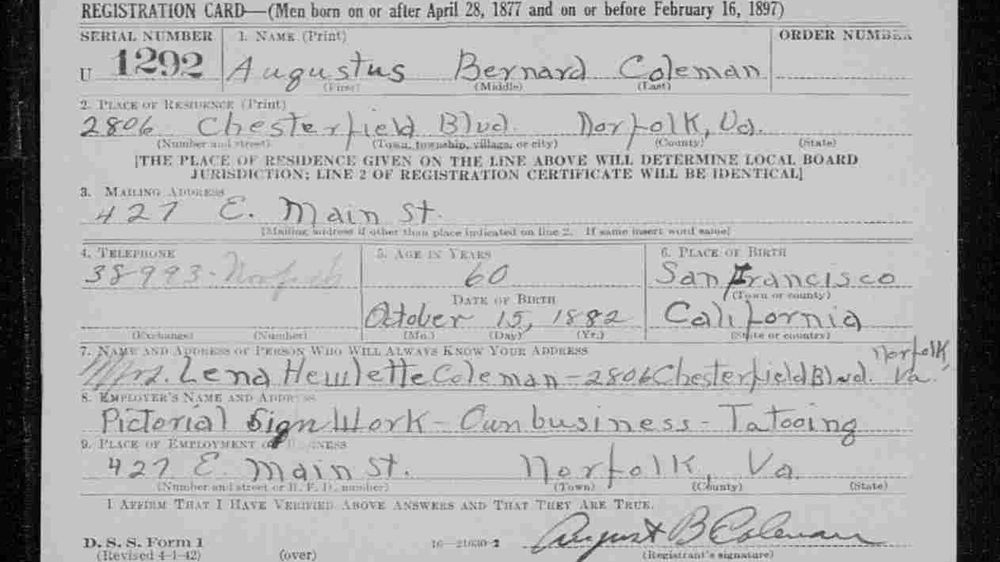 REGISTRATION CARD—(Men born on or after April 28, 1877 and on or before February 16, 1897)
SERIAL NUMBER 1. NAME (Print) ORDER NUMBER
U 1292 Augustus Bernard Coleman
(First) (Middle) (Last)
2. PLACE OF RESIDENCE (Print)
2806 Chesterfield Blvd. Norfolk, Va.
(Number and street) (Town, township, village, or city) (County) (State)
[THE PLACE OF RESIDENCE GIVEN ON THE LINE ABOVE WILL DETERMINE LOCAL BOARD
JURISDICTION; LINE 2 OF REGISTRATION CERTIFICATE WILL BE IDENTICAL]
3. MAILING ADDRESS
427 E. Main St.
[Mailing address if other than place indicated on line 2. If same insert word same]
4. TELEPHONE 5. AGE IN YEARS 6. PLACE OF BIRTH
38-993- Norfolk 60 San Francisco
DATE OF BIRTH (Town or county)
October 15, 1882 California
(Exchange) (Number) (Mo.) (Day) (Yr.) (State or country)
7. NAME AND ADDRESS OF PERSON WHO WILL ALWAYS KNOW YOUR ADDRESS
Mrs. Lena Hewlette Coleman - 2806 Chesterfield Blvd. Norfolk, Va.
8. EMPLOYER'S NAME AND ADDRESS
Pictorial Sign Work - Own business - Tatooing
9. PLACE OF EMPLOYMENT OR BUSINESS
427 E. Main St. Norfolk, Va.
(Number and street or R. F. D. number) (Town) (County) (State)
I AFFIRM THAT I HAVE VERIFIED ABOVE ANSWERS AND THAT THEY ARE TRUE.
August B Coleman
D. S. S. Form 1 16—21630-2
(Revised 4-1-42) (over) (Registrant's signature)